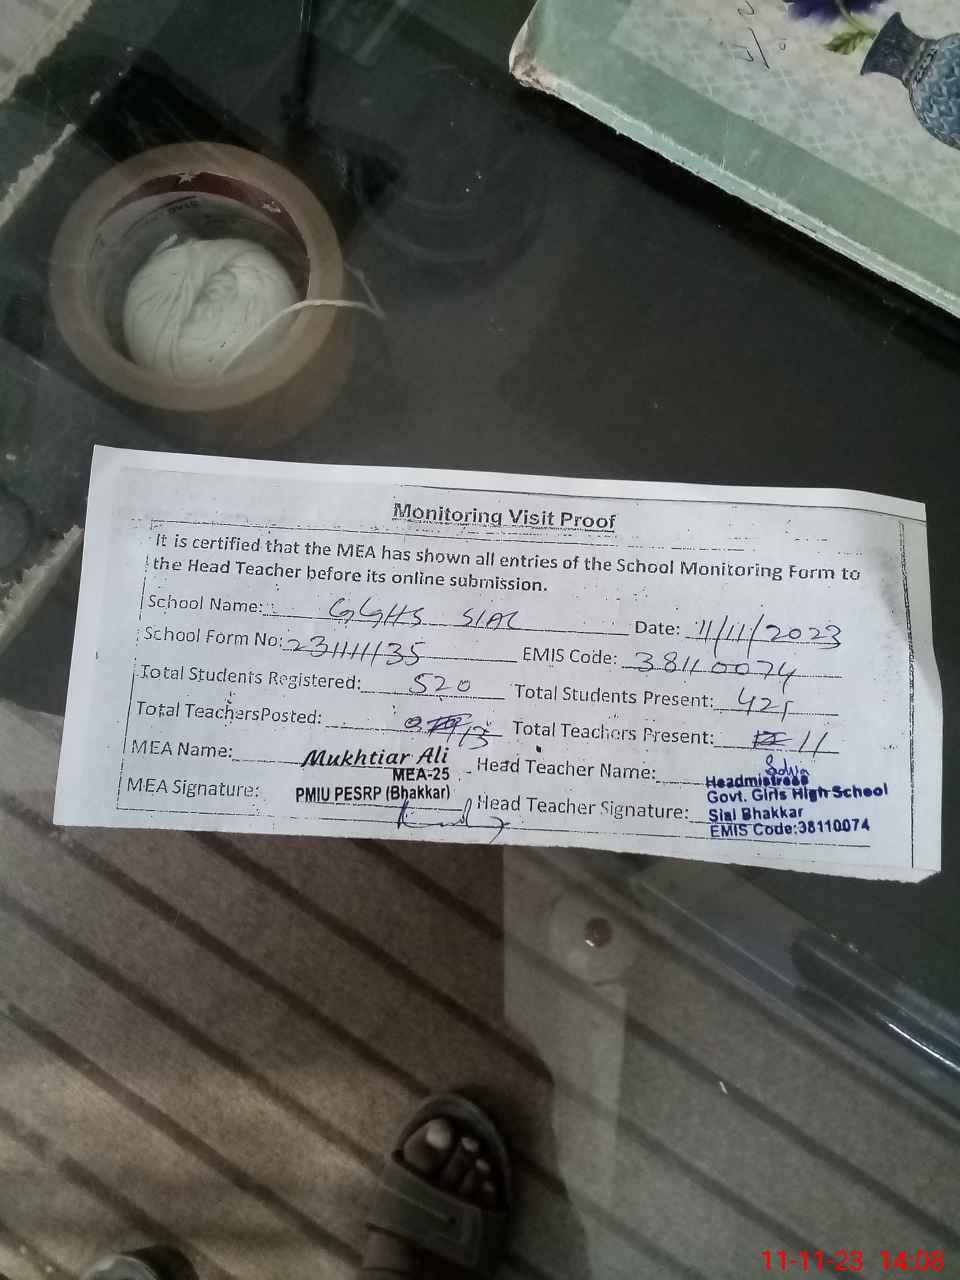 Monitoring Visit Proof
It is certified that the MEA has shown all entries of the School Monitoring Form to
the Head Teacher before its online submission.
School Name: GGHS SIAL Date: 11/11/2023
School Form No: 231111135 EMIS Code: 38110074
Total Students Registered: 520 Total Students Present: 421
Total TeachersPosted: 13 Total Teachers Present: 11
MEA Name: Mukhtiar Ali Head Teacher Name:
MEA-25 Headmistress
MEA Signature: PMIU PESRP (Bhakkar) Head Teacher Signature: Govt. Girls High School
Sial Bhakkar
EMIS Code:38110074
11-11-23 14:08